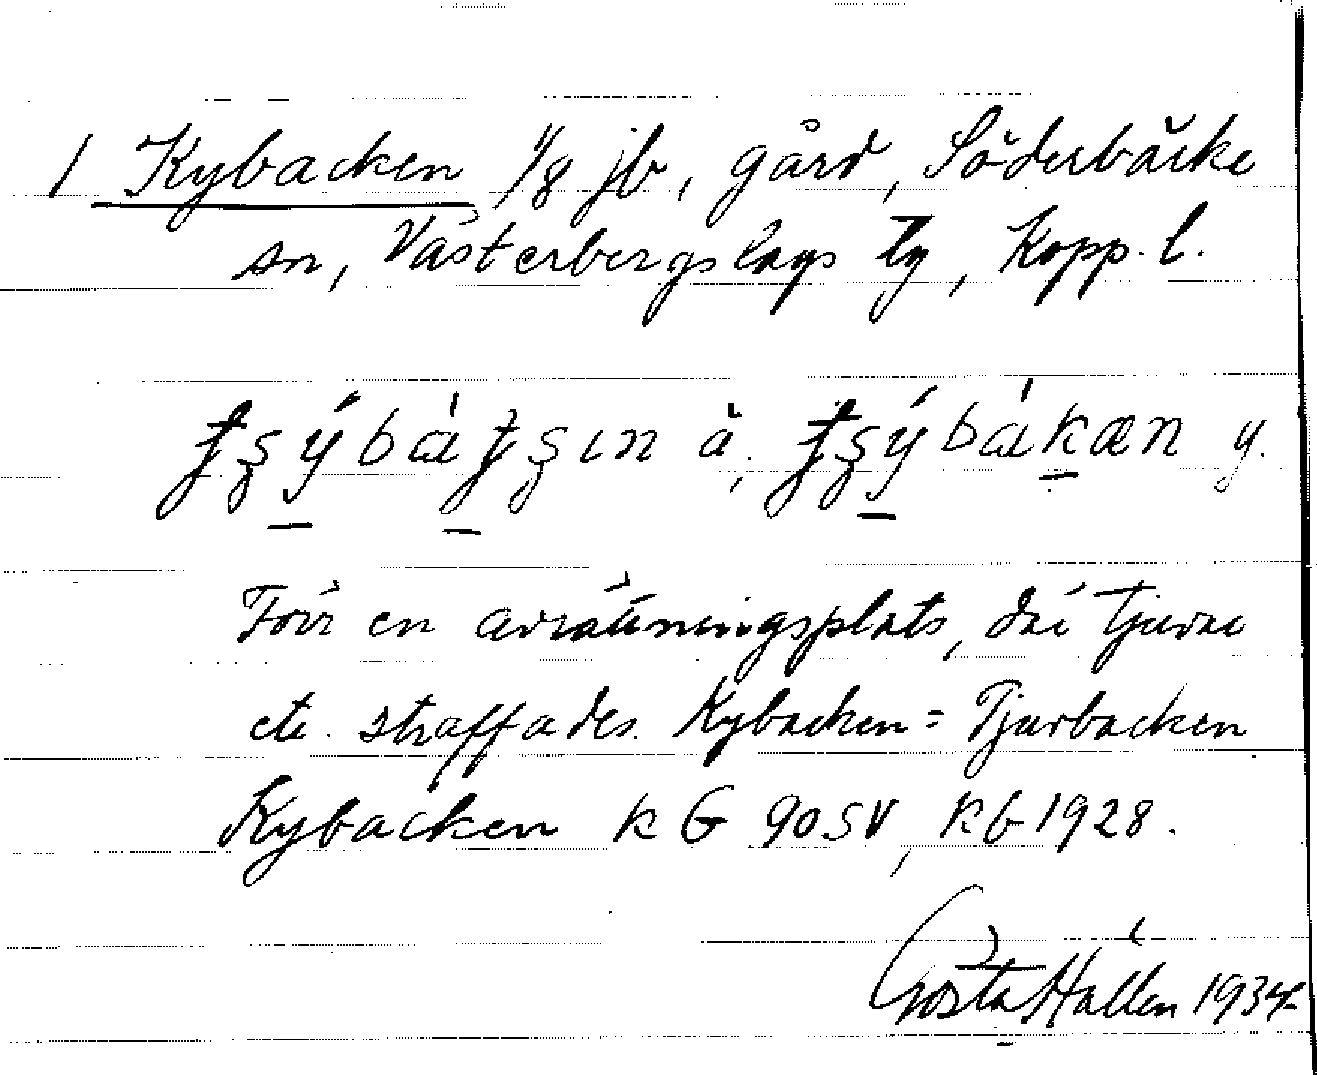 1 Kybacken 1/8 jb, gård, Söderbärke
sn, Västerbergslags tg, Kopp. l.
ä. y.
Förr en avrättningsplats, där tjuvar
etc. straffades. Kybacken = Tjuvbacken
Kybacken k G 90 SV, kb 1928.
Gösta Hallen 1934